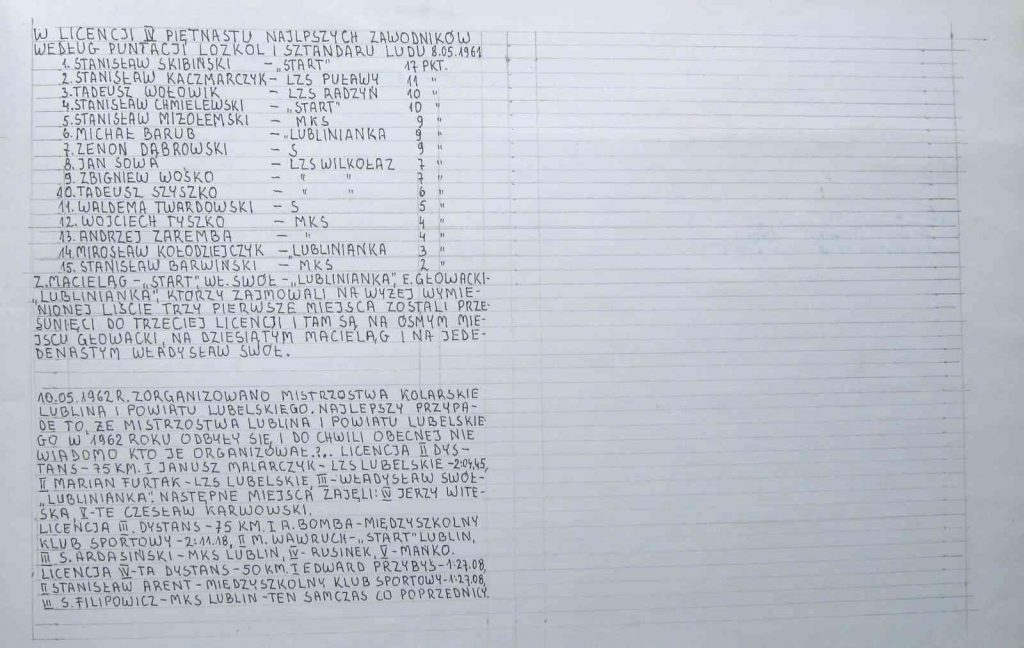 W LICENCJI IV PIĘTNASTU NAJLPSZYCH ZAWODNIKÓW
WEDŁUG PUNTACJI LOZKOL I SZTANDARU LUDU 8.05.1961
1. STANISŁAW SKIBIŃSKI - „START" 17 PKT.
2. STANISŁAW KACZMARCZYK - LZS PUŁAWY 11 "
3. TADEUSZ WOŁOWIK - LZS RADZYŃ 10 "
4. STANISŁAW CHMIELEWSKI - „START" 10 "
5. STANISŁAW MIZOŁEMSKI - MKS 9 "
6. MICHAŁ BARUB - „LUBLINIANKA 9 "
7. ZENON DĄBROWSKI - S 9 "
8. JAN SOWA - LZS WILKOŁAZ 7 "
9. ZBIGNIEW WOŚKO - " " 7 "
10. TADEUSZ SZYSZKO - " " 6 "
11. WALDEMA TWARDOWSKI - S 5 "
12. WOJCIECH TYSZKO - MKS 4 "
13. ANDRZEJ ZAREMBA - " 4 "
14. MIROSŁAW KOŁODZIEJCZYK - „LUBLINIANKA 3 "
15. STANISŁAW BARWIŃSKI - MKS 2 "
Z. MACIELĄG - „START" WŁ. SWÓŁ - „LUBLINIANKA", E. GŁOWACKI-
„LUBLINIANKA", KTÓRZY ZAJMOWALI NA WYŻEJ WYMIE-
NIONEJ LIŚCIE TRZY PIERWSZE MIEJSCA ZOSTALI PRZE-
SUNIĘCI DO TRZECIEJ LICENCJI I TAM SĄ NA ÓSMYM MIE-
JSCU GŁOWACKI, NA DZIESIĄTYM MACIELĄG I NA JEDE-
DENASTYM WŁADYSŁAW SWÓŁ.
10.05.1962 R. ZORGANIZOWANO MISTRZOSTWA KOLARSKIE
LUBLINA I POWIATU LUBELSKIEGO. NAJLEPSZY PRZYPA-
DE TO, ŻE MISTRZOSTWA LUBLINA I POWIATU LUBELSKIE-
GO W 1962 ROKU ODBYŁY SIĘ I DO CHWILI OBECNEJ NIE
WIADOMO KTO JE ORGANIZOWAŁ.?.. LICENCJA II DYS-
TANS - 75 KM. I JANUSZ MALARCZYK - LZS LUBELSKIE - 2:04,45,
II MARIAN FURTAK - LZS LUBELSKIE, III - WŁADYSŁAW SWÓŁ-
„LUBLINIANKA". NASTĘPNE MIEJSCA ZAJĘLI: IV JERZY WITE-
SKA, V-TE CZESŁAW KARWOWSKI.
LICENCJA III, DYSTANS - 75 KM. I A. BOMBA - MIĘDZYSZKOLNY
KLUB SPORTOWY - 2:11.18, II M. WAWRUCH - „START" LUBLIN,
III S. ARDASIŃSKI - MKS LUBLIN, IV - RUSINEK, V - MAŃKO.
LICENCJA IV-TA DYSTANS - 50 KM. I EDWARD PRZYBYS - 1:27.08,
II STANISŁAW ARENT - MIĘDZYSZKOLNY KLUB SPORTOWY - 1:27.08,
III S. FILIPOWICZ - MKS LUBLIN - TEN SAMCZAS CO POPRZEDNICY.